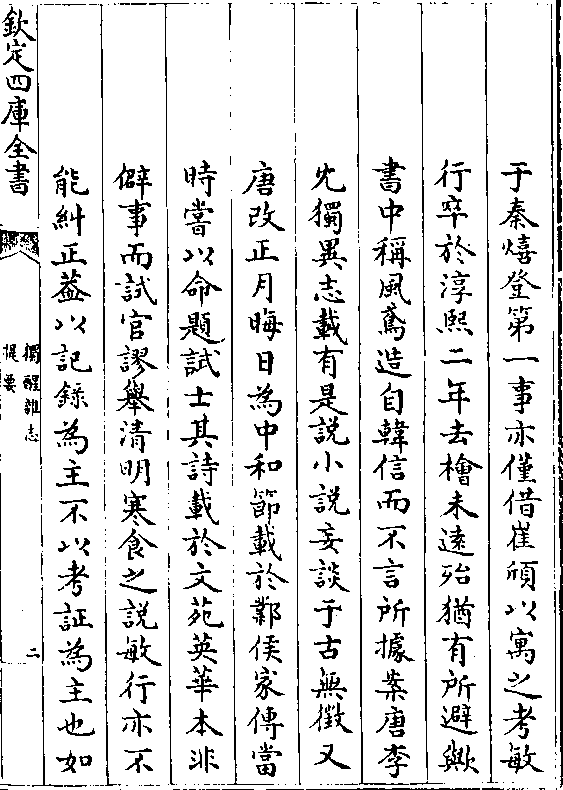 于秦熺登第一事亦僅借崔頎以寓之考敏
行卒於淳熙二年去檜未遠殆猶有所避歟
書中稱風鳶造自韓信而不言所據案唐李
冘獨異志載有是說小說妄談于古無徵又
唐改正月晦日為中和節載於鄴侯家傳當
時嘗以命題試士其詩載於文苑英華本非
僻事而試官謬舉清明寒食之説敏行亦不
能糾正葢以記錄為主不以考証為主也如
欽定四庫全書
獨醒雜志
提要
二